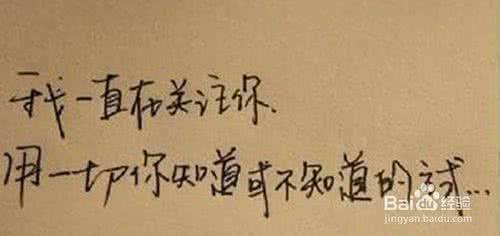 我一直在关注你.
用一切你知道或不知道的方式...
Baidu经验
jingyan.baidu.com